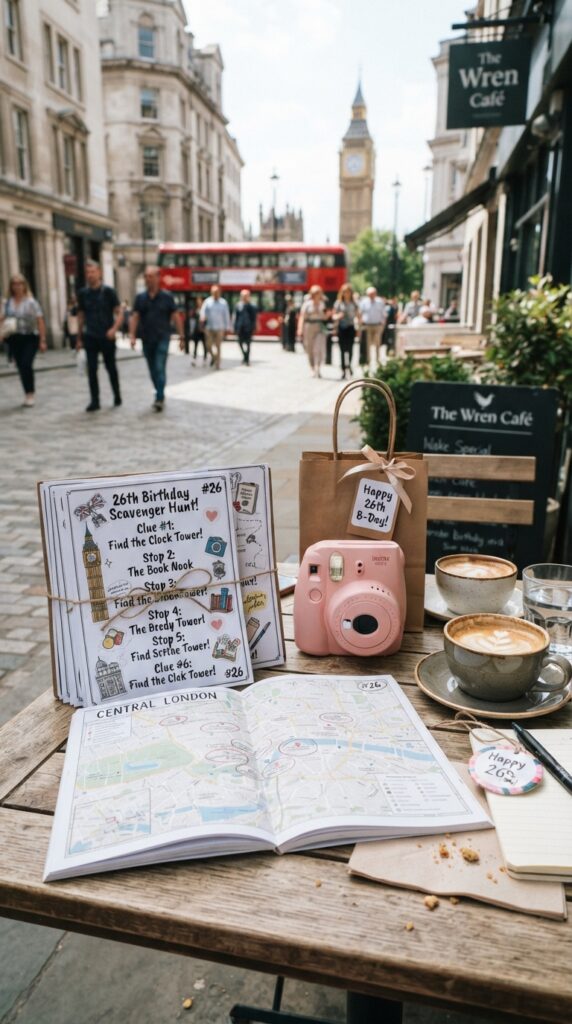 The
Wren
Café
The Wren Café
26th Birthday #26
Scavenger Hunt!
Clue #1:
Find the Clock Tower!
Stop 2:
The Book Nook
Stop 3:
Find the
Stop 4:
The Bredy Tower!
Stop 5:
Find Scfthe Tower!
Clue #6:
Find the Clok Tower!
#26
Happy
26th
B-Day!
CENTRAL LONDON
#26
Happy